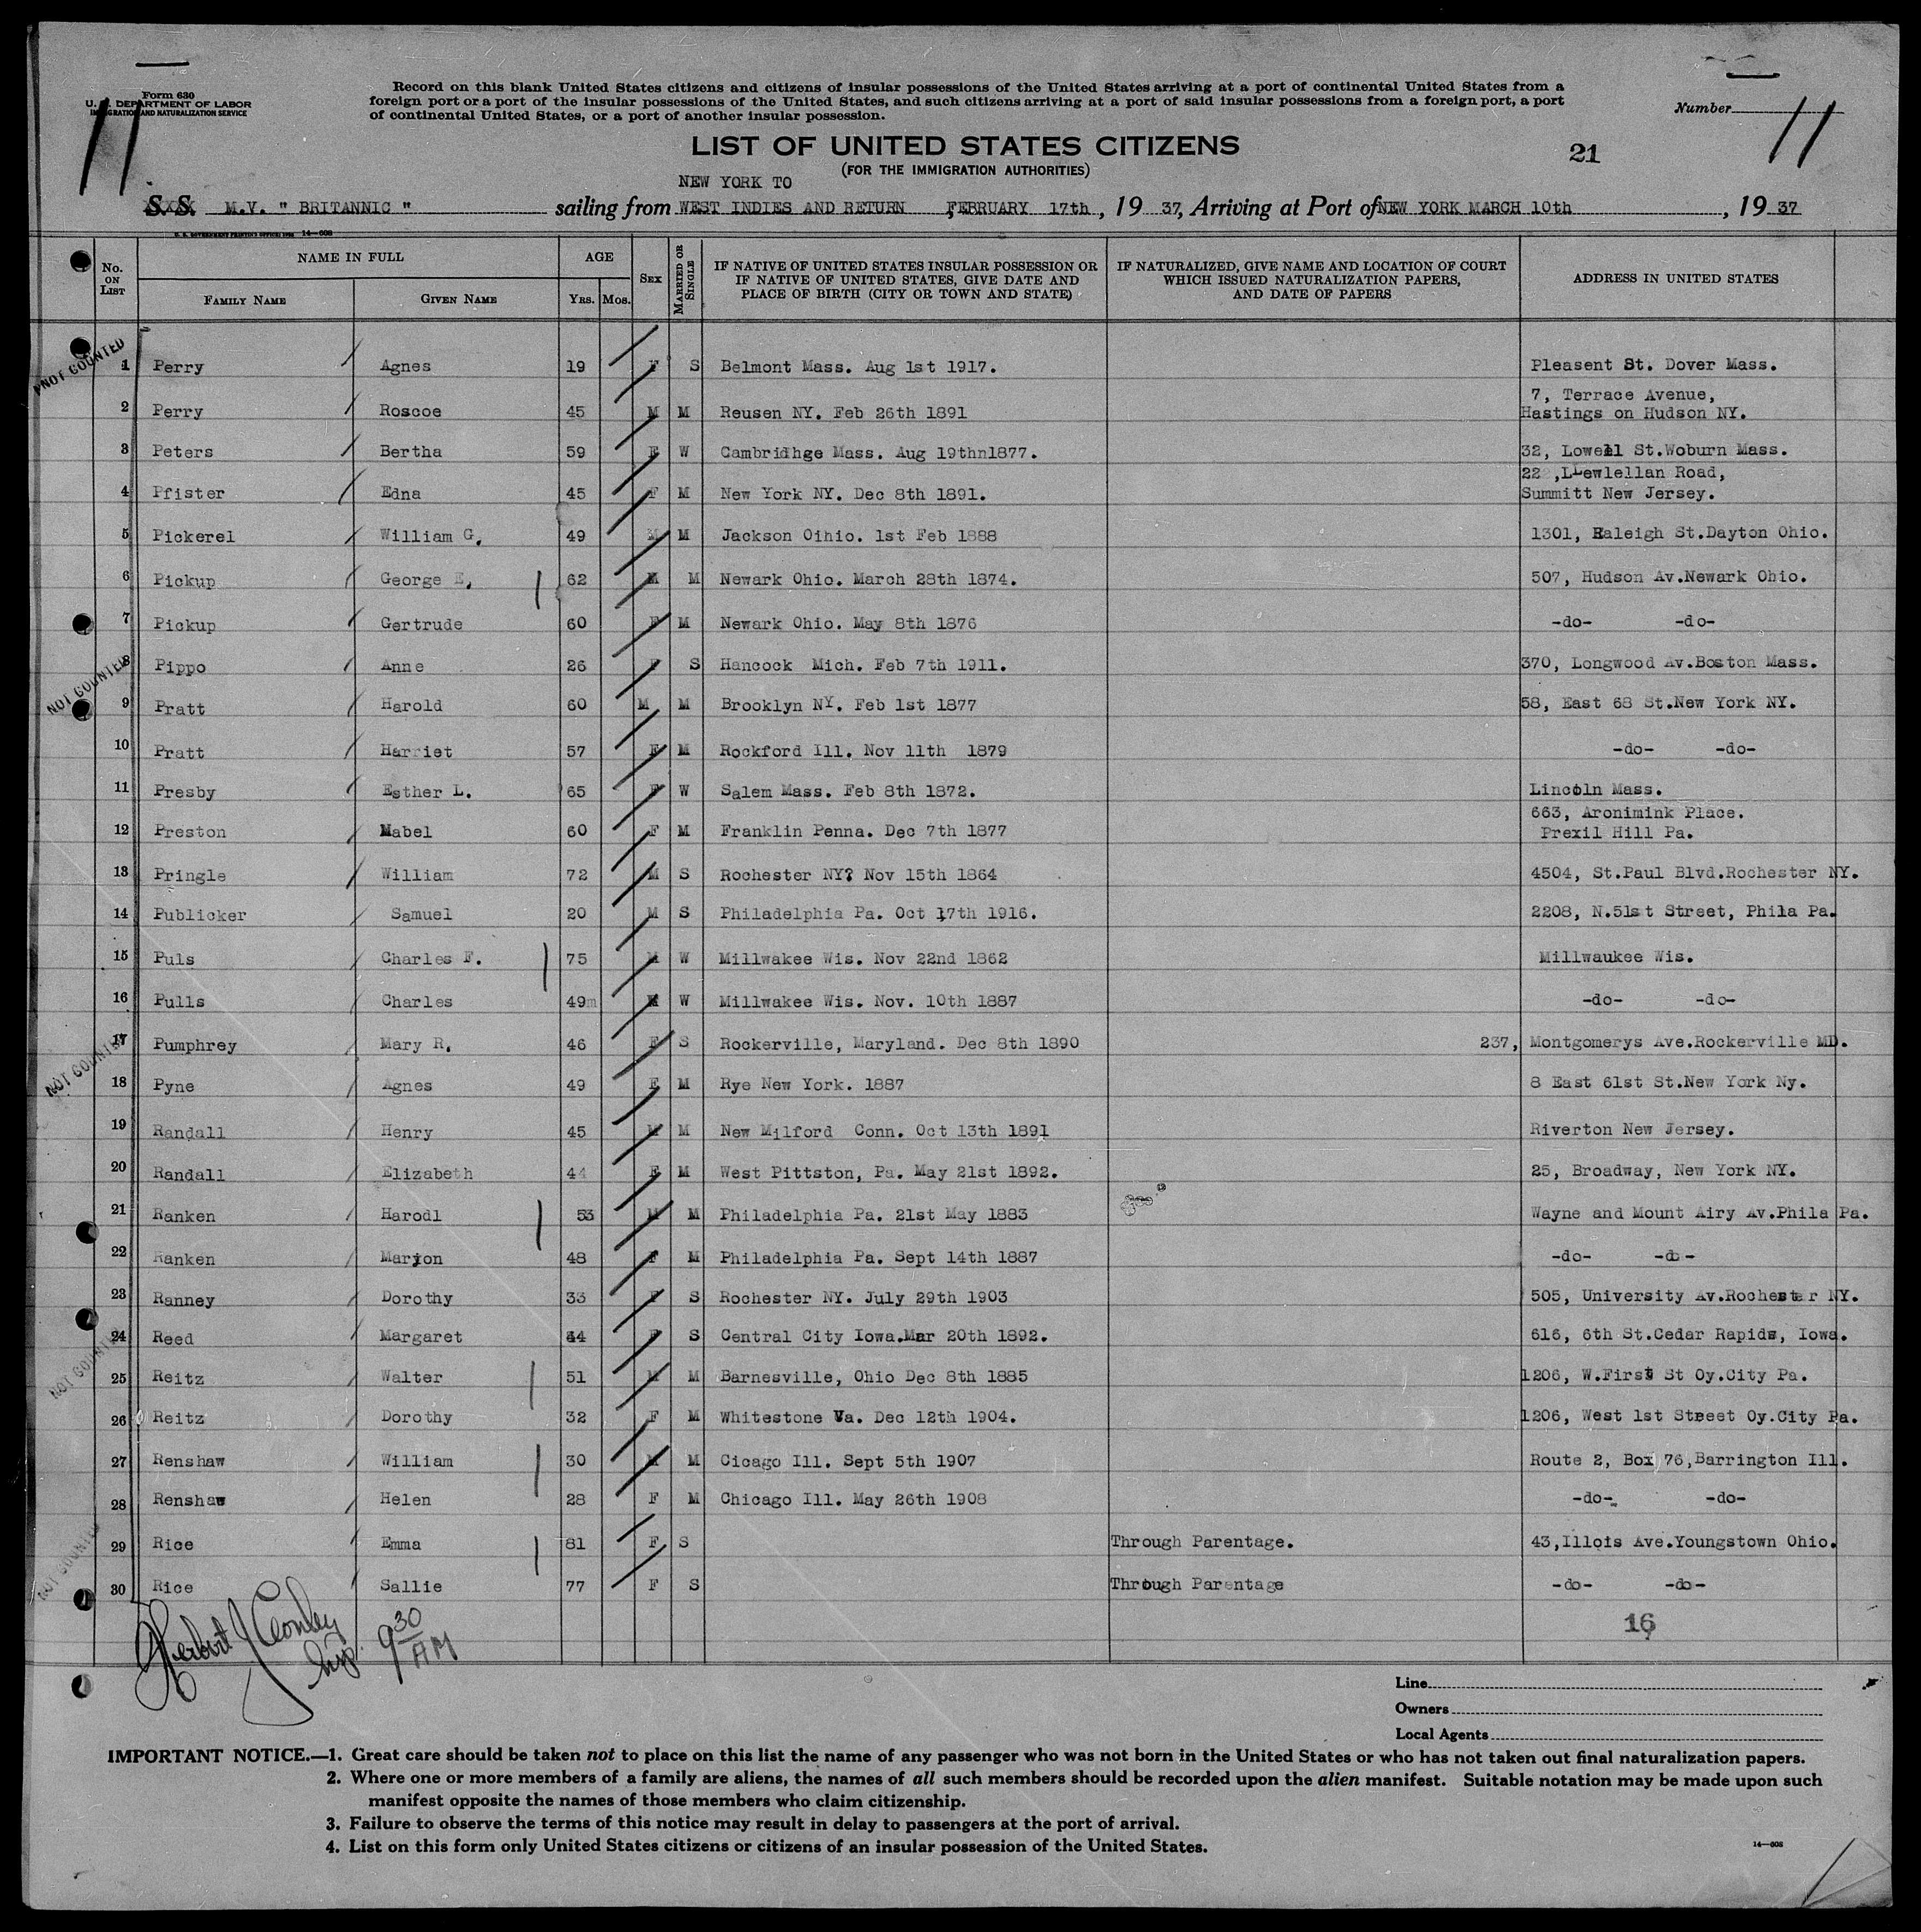 Form 630
U. S. DEPARTMENT OF LABOR
IMMIGRATION AND NATURALIZATION SERVICE
Record on this blank United States citizens and citizens of insular possessions of the United States arriving at a port of continental United States from a
foreign port or a port of the insular possessions of the United States, and such citizens arriving at a port of said insular possessions from a foreign port, a port
of continental United States, or a port of another insular possession.
Number
11
11
LIST OF UNITED STATES CITIZENS
21
(FOR THE IMMIGRATION AUTHORITIES)
NEW YORK TO
S. S. M.V. " BRITANNIC " sailing from WEST INDIES AND RETURN FEBRUARY 17th, 19 37, Arriving at Port of NEW YORK MARCH 10th, 19 37
No. ON LIST
NAME IN FULL
FAMILY NAME
GIVEN NAME
AGE
YRS. MOS.
SEX
MARRIED OR SINGLE
IF NATIVE OF UNITED STATES INSULAR POSSESSION OR
IF NATIVE OF UNITED STATES, GIVE DATE AND
PLACE OF BIRTH (CITY OR TOWN AND STATE)
IF NATURALIZED, GIVE NAME AND LOCATION OF COURT
WHICH ISSUED NATURALIZATION PAPERS,
AND DATE OF PAPERS
ADDRESS IN UNITED STATES
NOT COUNTED
1 Perry Agnes 19 F S Belmont Mass. Aug 1st 1917. Pleasent St. Dover Mass.
7, Terrace Avenue,
2 Perry Roscoe 45 M M Reusen NY. Feb 26th 1891 Hastings on Hudson NY.
3 Peters Bertha 59 F W Cambridhge Mass. Aug 19thn1877. 32, Lowell St.Woburn Mass.
22 ,Llewlellan Road,
4 Pfister Edna 45 F M New York NY. Dec 8th 1891. Summitt New Jersey.
5 Pickerel William G. 49 M M Jackson Oihio. 1st Feb 1888 1301, Raleigh St.Dayton Ohio.
6 Pickup George E. 62 M M Newark Ohio. March 28th 1874. 507, Hudson Av.Newark Ohio.
7 Pickup Gertrude 60 F M Newark Ohio. May 8th 1876 -do- -do-
NOT COUNTED
8 Pippo Anne 26 F S Hancock Mich. Feb 7th 1911. 370, Longwood Av.Boston Mass.
9 Pratt Harold 60 M M Brooklyn NY. Feb 1st 1877 58, East 68 St.New York NY.
10 Pratt Harriet 57 F M Rockford Ill. Nov 11th 1879 -do- -do-
11 Presby Esther L. 65 F W Salem Mass. Feb 8th 1872. Lincoln Mass.
663, Aronimink Place.
12 Preston Mabel 60 F M Franklin Penna. Dec 7th 1877 Prexil Hill Pa.
13 Pringle William 72 M S Rochester NY? Nov 15th 1864 4504, St.Paul Blvd.Rochester NY.
14 Publicker Samuel 20 M S Philadelphia Pa. Oct 17th 1916. 2208, N.51st Street, Phila Pa.
15 Puls Charles F. 75 M W Millwakee Wis. Nov 22nd 1862 Millwaukee Wis.
16 Pulls Charles 49m M W Millwakee Wis. Nov. 10th 1887 -do- -do-
NOT COUNTED
17 Pumphrey Mary R. 46 F S Rockerville, Maryland. Dec 8th 1890 237, Montgomerys Ave.Rockerville MD.
18 Pyne Agnes 49 F M Rye New York. 1887 8 East 61st St.New York Ny.
19 Randall Henry 45 M M New Milford Conn. Oct 13th 1891 Riverton New Jersey.
20 Randall Elizabeth 44 F M West Pittston, Pa. May 21st 1892. 25, Broadway, New York NY.
21 Ranken Harodl 53 M M Philadelphia Pa. 21st May 1883 Wayne and Mount Airy Av.Phila Pa.
22 Ranken Marion 48 F M Philadelphia Pa. Sept 14th 1887 -do- -do-
23 Ranney Dorothy 33 F S Rochester NY. July 29th 1903 505, University Av.Rochester NY.
NOT COUNTED
24 Reed Margaret 44 F S Central City Iowa.Mar 20th 1892. 616, 6th St.Cedar Rapids, Iowa.
25 Reitz Walter 51 M M Barnesville, Ohio Dec 8th 1885 1206, W.First St Oy.City Pa.
26 Reitz Dorothy 32 F M Whitestone Va. Dec 12th 1904. 1206, West 1st Street Oy.City Pa.
27 Renshaw William 30 M M Cicago Ill. Sept 5th 1907 Route 2, Box 76,Barrington Ill.
28 Renshaw Helen 28 F M Chicago Ill. May 26th 1908 -do- -do-
NOT COUNTED
29 Rice Emma 81 F S Through Parentage. 43,Illois Ave.Youngstown Ohio.
30 Rice Sallie 77 F S Through Parentage -do- -do-
16
Herbert J Conley
Insp. 9 30 AM
Line
Owners
Local Agents
IMPORTANT NOTICE.—1. Great care should be taken not to place on this list the name of any passenger who was not born in the United States or who has not taken out final naturalization papers.
2. Where one or more members of a family are aliens, the names of all such members should be recorded upon the alien manifest. Suitable notation may be made upon such
manifest opposite the names of those members who claim citizenship.
3. Failure to observe the terms of this notice may result in delay to passengers at the port of arrival.
4. List on this form only United States citizens or citizens of an insular possession of the United States.
14—608